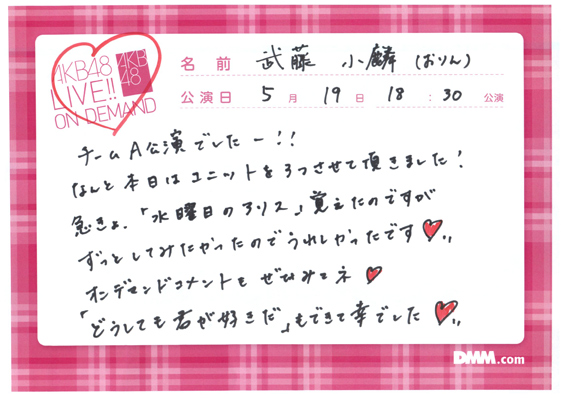 AKB48
LIVE!!
ON DEMAND
AKB
48
名前 武藤 小麟 (おりん)
公演日 5月 19日 18:30 公演
チームA公演でしたー!!
なんと本日はユニットを3つさせて頂きました!
急きょ、「水曜日のアリス」覚えたのですが
ずっとしてみたかったのでうれしかったです♥,,
オンデマンドコメントもぜひみてネ♥
「どうしても君が好きだ」もできて幸でした♥,,
DMM.com